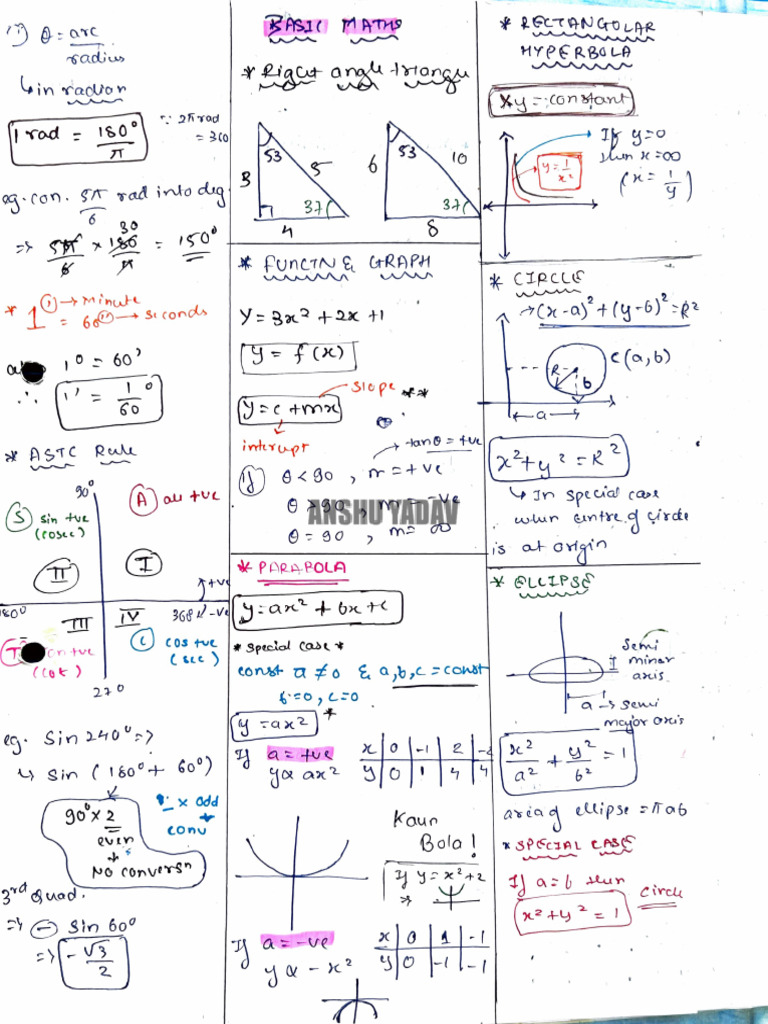 ii) θ = arc
radius
↳ in radian
1 rad = 180°
π
∵ 2π rad
= 360
eg. con. 5π rad into deg
6
30
=> 5π × 180 = 150°
6 π
* 1° (') → minute
= 60('') → seconds
1° = 60'
∴ 1' = 1 °
60
* ASTC Rule
90°
S sin +ve
(cosec)
A all +ve
II
I
180°
+ve
360° -ve
III
IV
T tan +ve
(cot)
C cos +ve
(sec)
270
eg. Sin 240° =>
↳ sin (180° + 60°)
90° × 2
even
No conversn
× odd
conv
3rd Quad.
=> - Sin 60°
=> - √3
2
BASIC MATHS
* Rigut angle triangle
53
3
5
37
4
53
6
10
37
8
* FUNCTN & GRAPH
y = 3x² + 2x + 1
y = f(x)
slope **
y = c + mx
interupt
tanθ = +ve
if θ < 90, m = +ve
θ > 90, m = -ve
θ = 90, m = ∞
ANSHU YADAV
* PARABOLA
y = ax² + bx + c
* special case *
const a ≠ 0 & a, b, c = const
b = 0, c = 0
y = ax² *
If a = +ve
y α ax²
x 0 -1 2 -2
y 0 1 4 4
Kaun
Bola!
If y = x² + 2
=>
If a = -ve
y α - x²
x 0 1 -1
y 0 -1 -1
* RECTANGOLAR
HYPERBOLA
xy = constant
y = 1
x²
If y = 0
then x = ∞
(x = 1
y)
* CIRCLE
→ (x-a)² + (y-b)² = R²
C(a, b)
R
b
a
x² + y² = R²
↳ In special case
when centre of circle
is at origin
* ELLIPSE
Semi
minor
axis
a → semi
major axis
x² + y² = 1
a² b²
area of ellipse = πab
* SPECIAL CASE
If a = b then
x² + y² = 1
circle